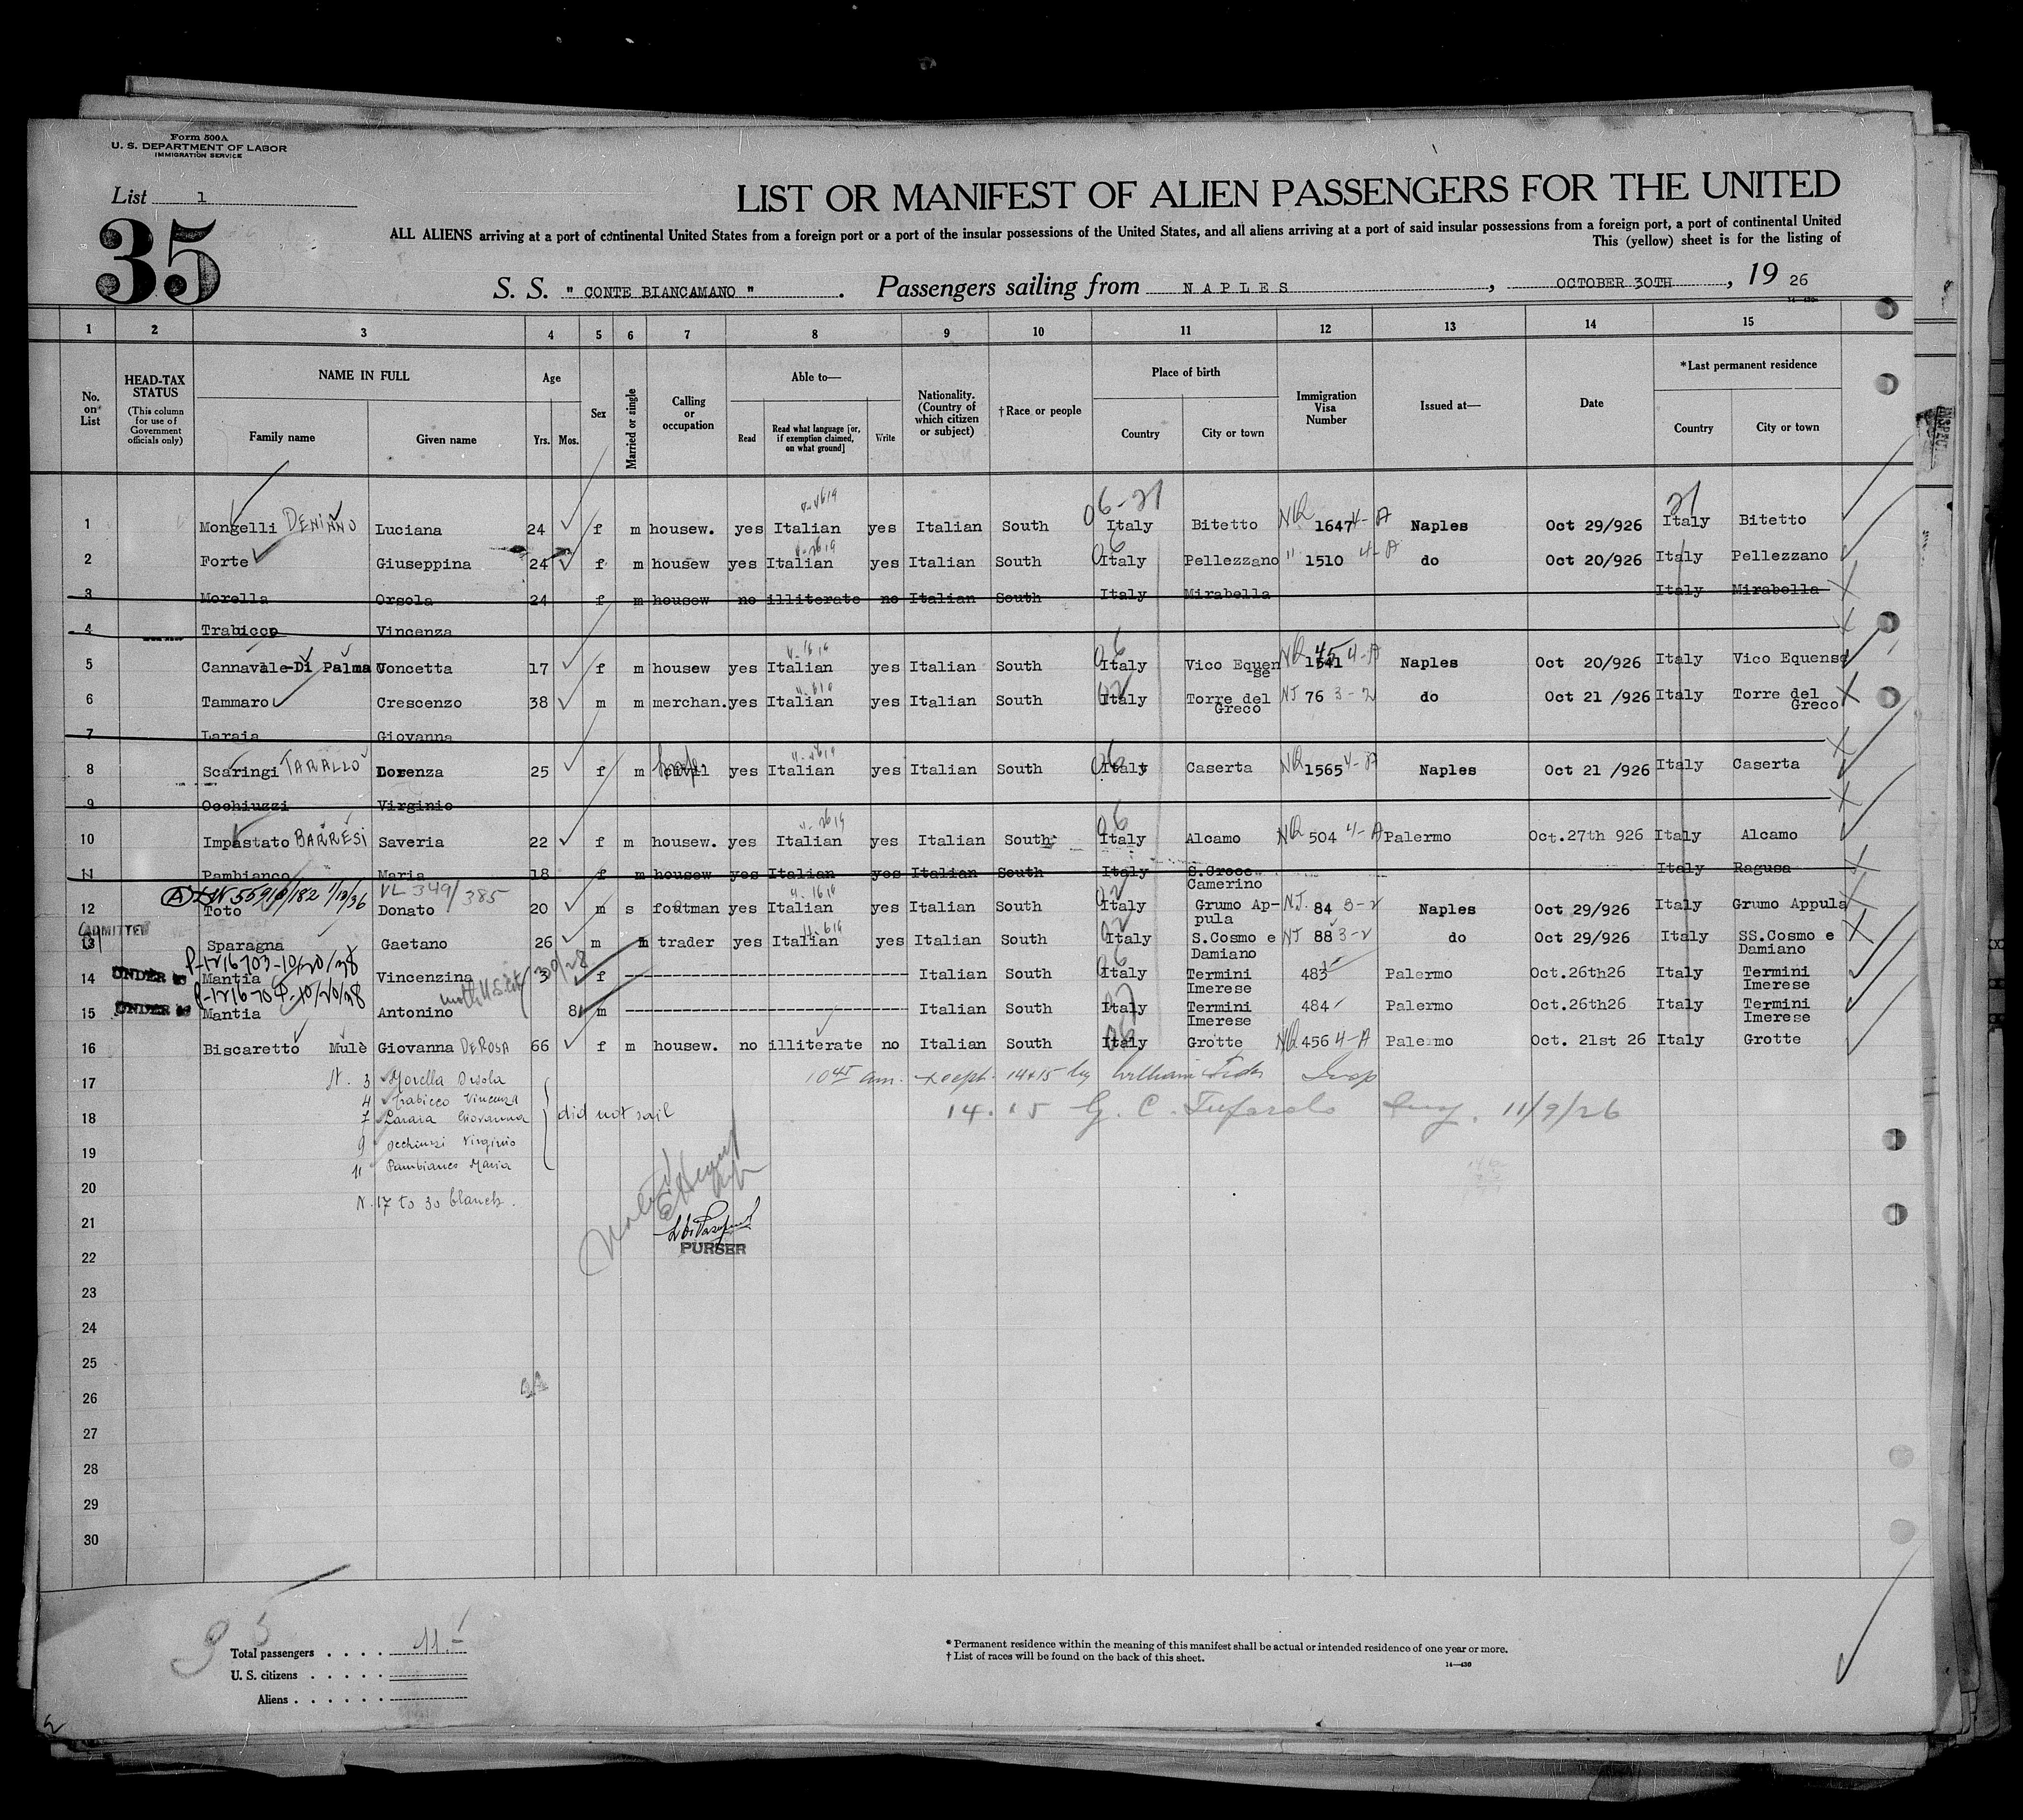 Form 500A
U. S. DEPARTMENT OF LABOR
IMMIGRATION SERVICE
List 1
35
LIST OR MANIFEST OF ALIEN PASSENGERS FOR THE UNITED
ALL ALIENS arriving at a port of continental United States from a foreign port or a port of the insular possessions of the United States, and all aliens arriving at a port of said insular possessions from a foreign port, a port of continental United
This (yellow) sheet is for the listing of
S. S. " CONTE BIANCAMANO ". Passengers sailing from NAPLES, OCTOBER 30TH, 19 26
1 2 3 4 5 6 7 8 9 10 11 12 13 14 15
No. on List
HEAD-TAX STATUS (This column for use of Government officials only)
NAME IN FULL Family name Given name
Age Yrs. Mos.
Sex
Married or single
Calling or occupation
Able to— Read Read what language [or, if exemption claimed, on what ground] Write
Nationality. (Country of which citizen or subject)
†Race or people
Place of birth Country City or town
Immigration Visa Number
Issued at—
Date
*Last permanent residence Country City or town
06-21 21
1 Mongelli DENINNO Luciana 24 f m housew. yes Italian yes Italian South Italy Bitetto NQ 1647 4-A Naples Oct 29/926 Italy Bitetto
2 Forte Giuseppina 24 f m housew yes Italian yes Italian South 06 Italy Pellezzano " 1510 4-A do Oct 20/926 Italy Pellezzano
3 Morella Orsola 24 f m housew no illiterate no Italian South Italy Mirabella Italy Mirabella
4 Trabicco Vincenza
5 Cannavale-Di Palma Concetta 17 f m housew yes Italian yes Italian South 06 Italy Vico Equense NQ 1541 45 4-A Naples Oct 20/926 Italy Vico Equense
6 Tammaro Crescenzo 38 m m merchan. yes Italian yes Italian South 02 Italy Torre del Greco NJ 76 3-2 do Oct 21 /926 Italy Torre del Greco
7 Laraia Giovanna
8 Scaringi TARALLO Lorenza 25 f m civil yes Italian yes Italian South 06 Italy Caserta NQ 1565 4-A Naples Oct 21 /926 Italy Caserta
9 Occhiuzzi Virginio
10 Impastato BARRESI Saveria 22 f m housew. yes Italian yes Italian South 06 Italy Alcamo NQ 504 4-A Palermo Oct.27th 926 Italy Alcamo
11 Pambianco Maria 18 f m housew yes Italian yes Italian South Italy S.Croce Camerino Italy Ragusa
VL 349/385
12 Toto Donato 20 m s footman yes Italian yes Italian South 02 Italy Grumo Appula NJ. 84 3-2 Naples Oct 29/926 Italy Grumo Appula
ADMITTED
13 Sparagna Gaetano 26 m m trader yes Italian yes Italian South 02 Italy S.Cosmo e Damiano NJ 88 3-2 do Oct 29/926 Italy SS.Cosmo e Damiano
P-1216703-10/20/38
14 UNDER Mantia Vincenzina 3 f Italian South 06 Italy Termini Imerese 483 Palermo Oct.26th26 Italy Termini Imerese
P-1216704-10/20/38
15 UNDER Mantia Antonino 8 m Italian South Italy Termini Imerese 484 Palermo Oct.26th26 Italy Termini Imerese
16 Biscaretto Mulè Giovanna DE ROSA 66 f m housew. no illiterate no Italian South 06 Italy Grotte NQ 456 4-A Palermo Oct. 21st 26 Italy Grotte
17 N. 3 Morella Orsola
10 45 am. except 14 & 15 by William Insp
4 Trabicco Vincenza
18 7 Laraia Giovanna did not sail
14.15 G. C. Tufarolo Insp. 11/9/26
9 Occhiuzi Virginio
19 11 Pambianco Maria
20 N. 17 to 30 blanch.
21
22 PURSER
23
24
25
26
27
28
29
30
Total passengers 11.-
U. S. citizens
Aliens
* Permanent residence within the meaning of this manifest shall be actual or intended residence of one year or more.
† List of races will be found on the back of this sheet.
14—430